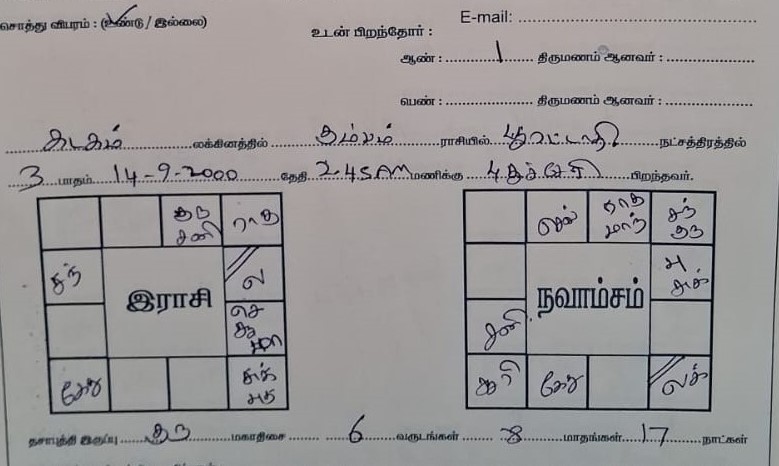 E-mail:
சொத்து விபரம் : (உண்டு / இல்லை)
உடன் பிறந்தோர் :
ஆண் : 1 திருமணம் ஆனவர் :
பெண் : திருமணம் ஆனவர் :
கடகம் லக்கினத்தில் கும்பம் ராசியில் பூரட்டாதி நட்சத்திரத்தில்
3 பாதம் 14-9-2000 தேதி 2.45AM மணிக்கு புதுச்சேரி பிறந்தவர்.
குரு ராகு செவ் ராகு சந்
சனி மாந் குரு
சந் ல
இராசி நவாம்சம் சுக்
செ சனி
சூ
மா
கேது சுக் சூரி கேது லக்
புத
தசாபுத்தி இருப்பு குரு மகாதிசை 6 வருடங்கள் 8 மாதங்கள் 17 நாட்கள்